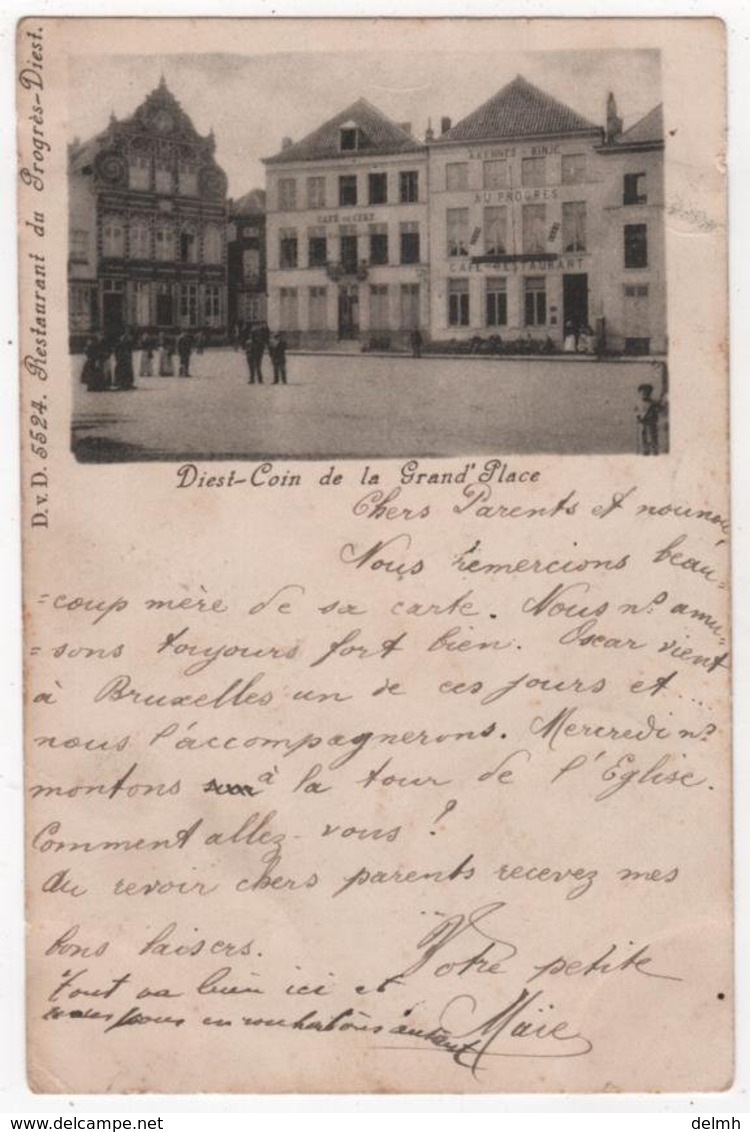 D.v.D. 5524. Restaurant du Progrès-Diest.
CAFÉ DU CERF
AU PROGRÈS
CAFÉ-RESTAURANT
Diest-Coin de la Grand' Place
Chers Parents et nounou
Nous remercions beau-
=coup mère de sa carte. Nous ns. amu-
=sons toujours fort bien. Oscar vient
à Bruxelles un de ces jours et...
nous l'accompagnerons. Mercredi ns.
montons à la tour de l'Eglise.
Comment allez-vous?
Au revoir chers parents recevez mes
bons baisers. Votre petite
Tout va bien ici et
vous en souhaitons autant
Maïe
delmh